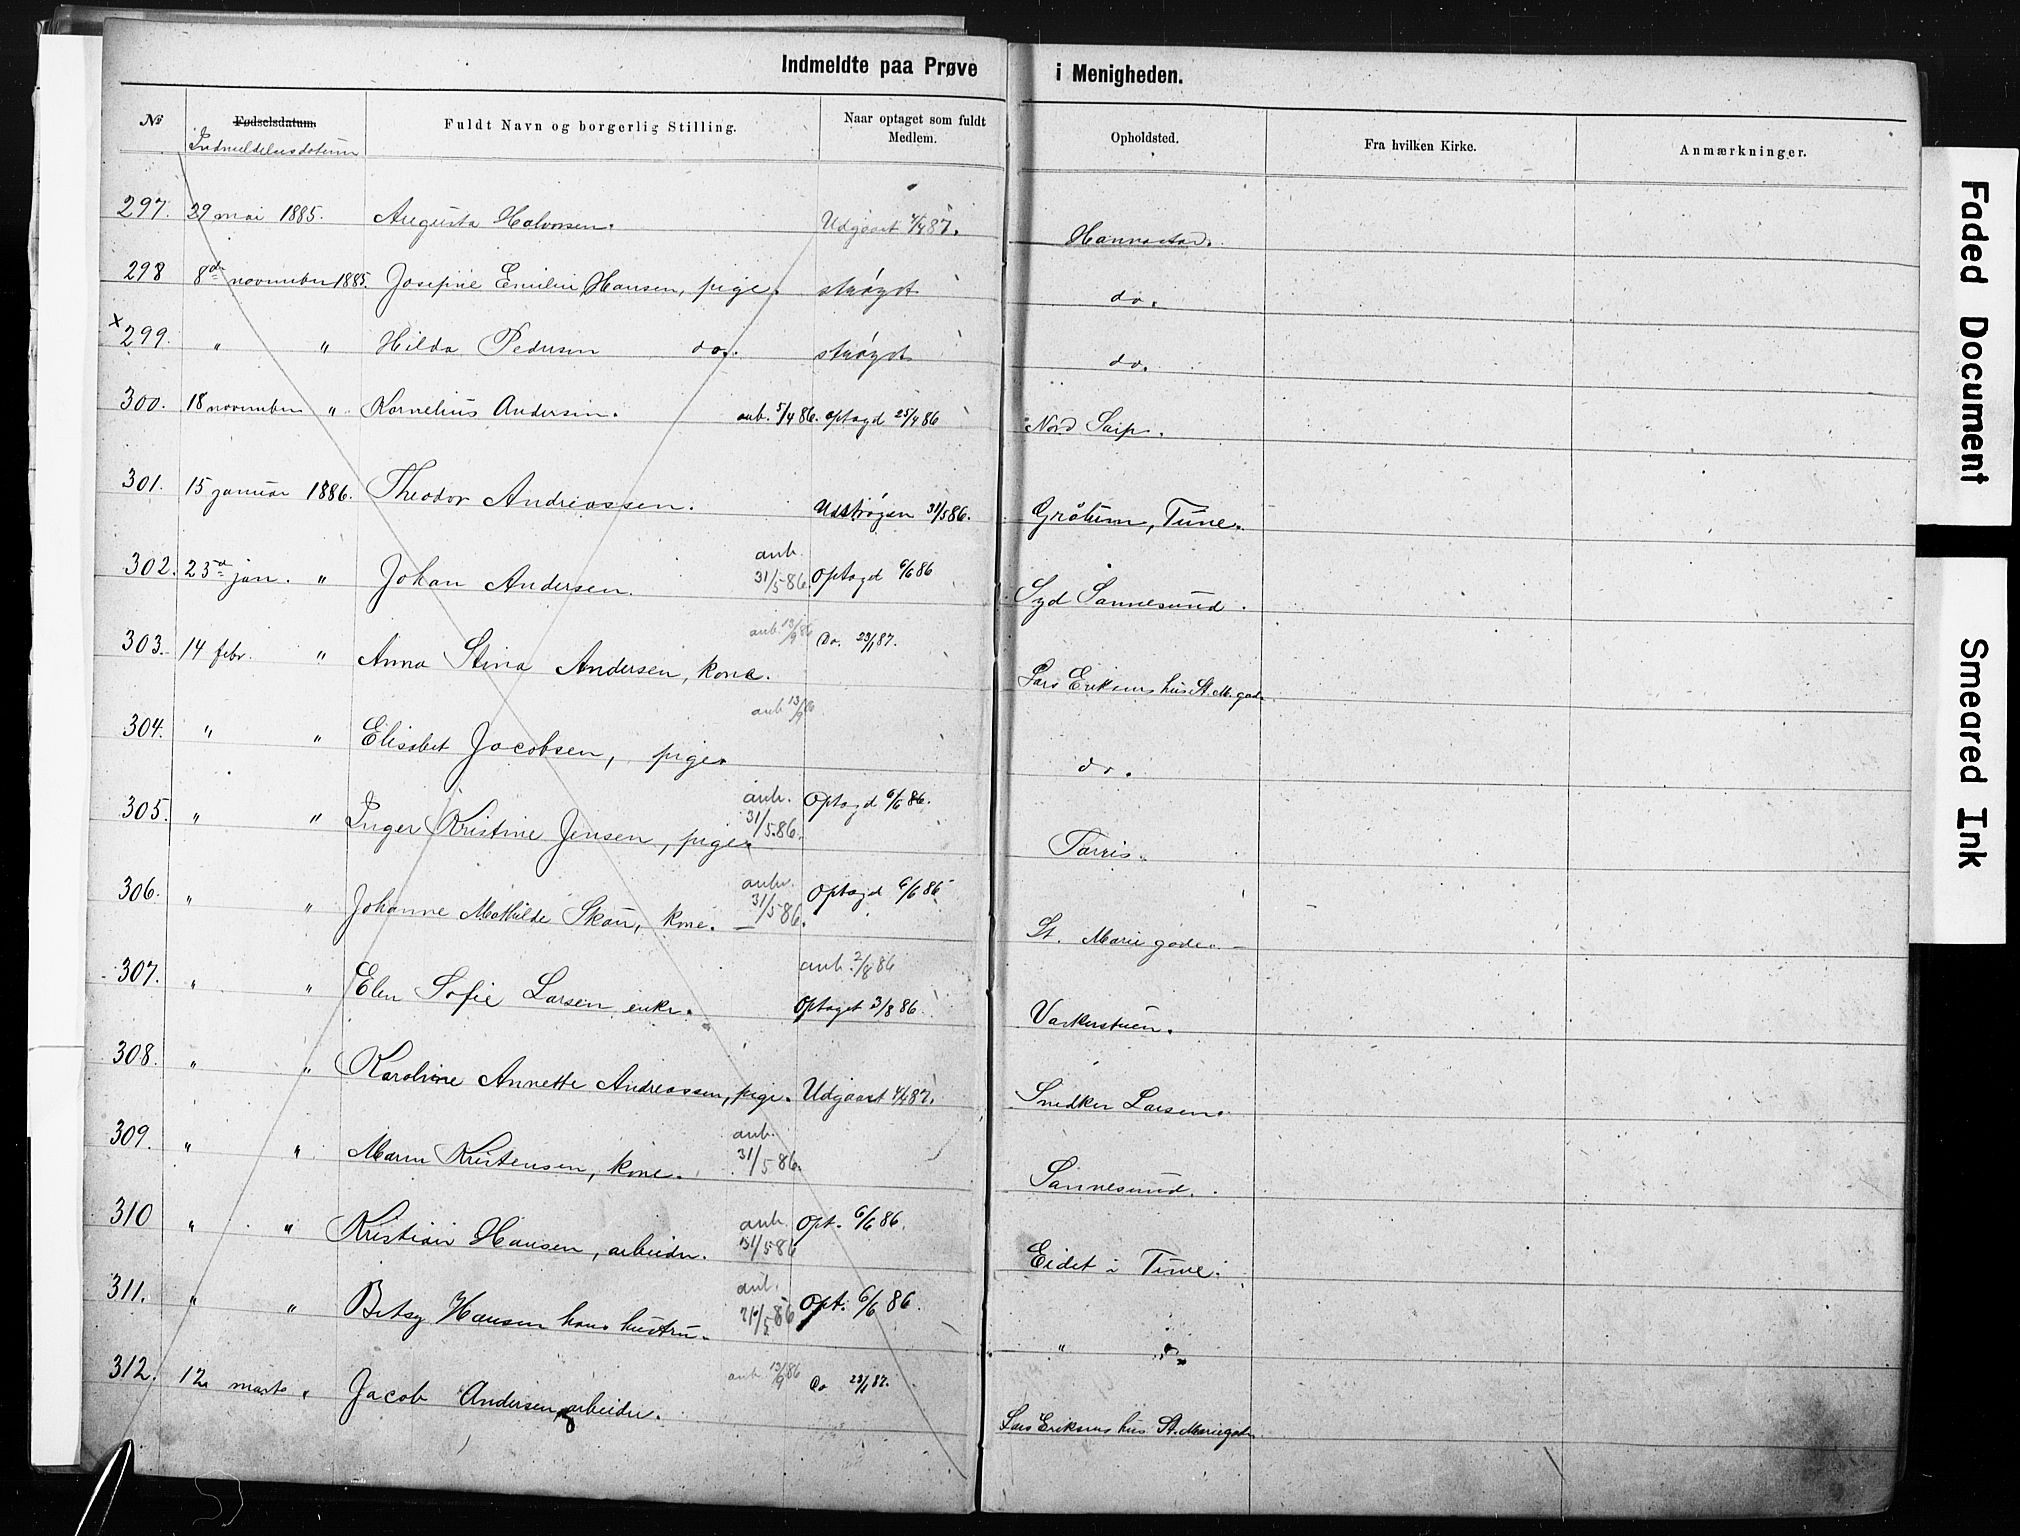 Indmeldte paa Prøve i Menigheden.
№ Fødselsdatum. Fuldt Navn og borgerlig Stilling. Naar optaget som fuldt Medlem. Opholdsted. Fra hvilken Kirke. Anmærkninger.
Indmeldelsesdatum
297. 29 mai 1885. Augusta Halvorsen. Udgaaet 4/4 87. Hannestad.
298 8de november 1885. Josefine Emilie Hansen, pige. strøget do.
x 299. " " Hilda Pedersen do. strøget do.
300. 18 november " Kornelius Andersen. anb. 5/4 86. optagd 25/4 86 Nord
301. 15 januar 1886. Theodor Andreassen. Udstrøgen 31/5 86. Gråtum, Tune.
302. 23de jan. " Johan Andersen. anb. 31/5 86. Optagd 6/6 86 Syd Sannesund.
303. 14 febr. " Anna Stina Andersen, kone. anb. 13/9 86 Do. 23/1 87. Lars Eriksens hus St. M. gade
304. " " Elisabet Jacobsen, pige. anb. 13/9 86 do.
305. " " Inger Kristine Jensen, pige. anb. 31/5 86. Optagd 6/6 86. Tarris.
306. " " Johanne Mathilde Skau, kone. anb. 31/5 86. Optagd 6/6 86 St. Marie gade. —
307. " " Elen Sofie Larsen enke. anb. 2/8 86 Optaget 3/8 86 Varkerstuen.
308. " " Karoline Annette Andreassen, pige. Udgaaet 4/4 87. Snedker Larsen.
309. " " Maren Kristensen, kone. anb. 31/5 86. Sannesund.
310 " " Kristian Hansen, arbeider. anb. 31/5 86 Opt. 6/6 86. Eidet i Tune.
311. " " Betsy Hansen hans hustru. anb. 31/5 86 Opt. 6/6 86. " "
312. 12 marts " Jacob Andersen, arbeider. anb. 13/9 86 Do 23/1 87. Lars Eriksens hus St. Mariegade
Faded Document
Smeared Ink